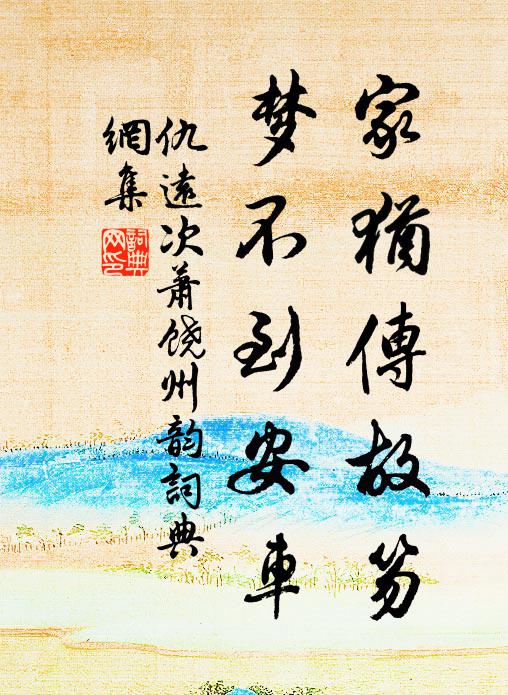 家犹傳故笏
梦不到安車
仇遠次萧饶州韵詞典
網集
詞典
网印